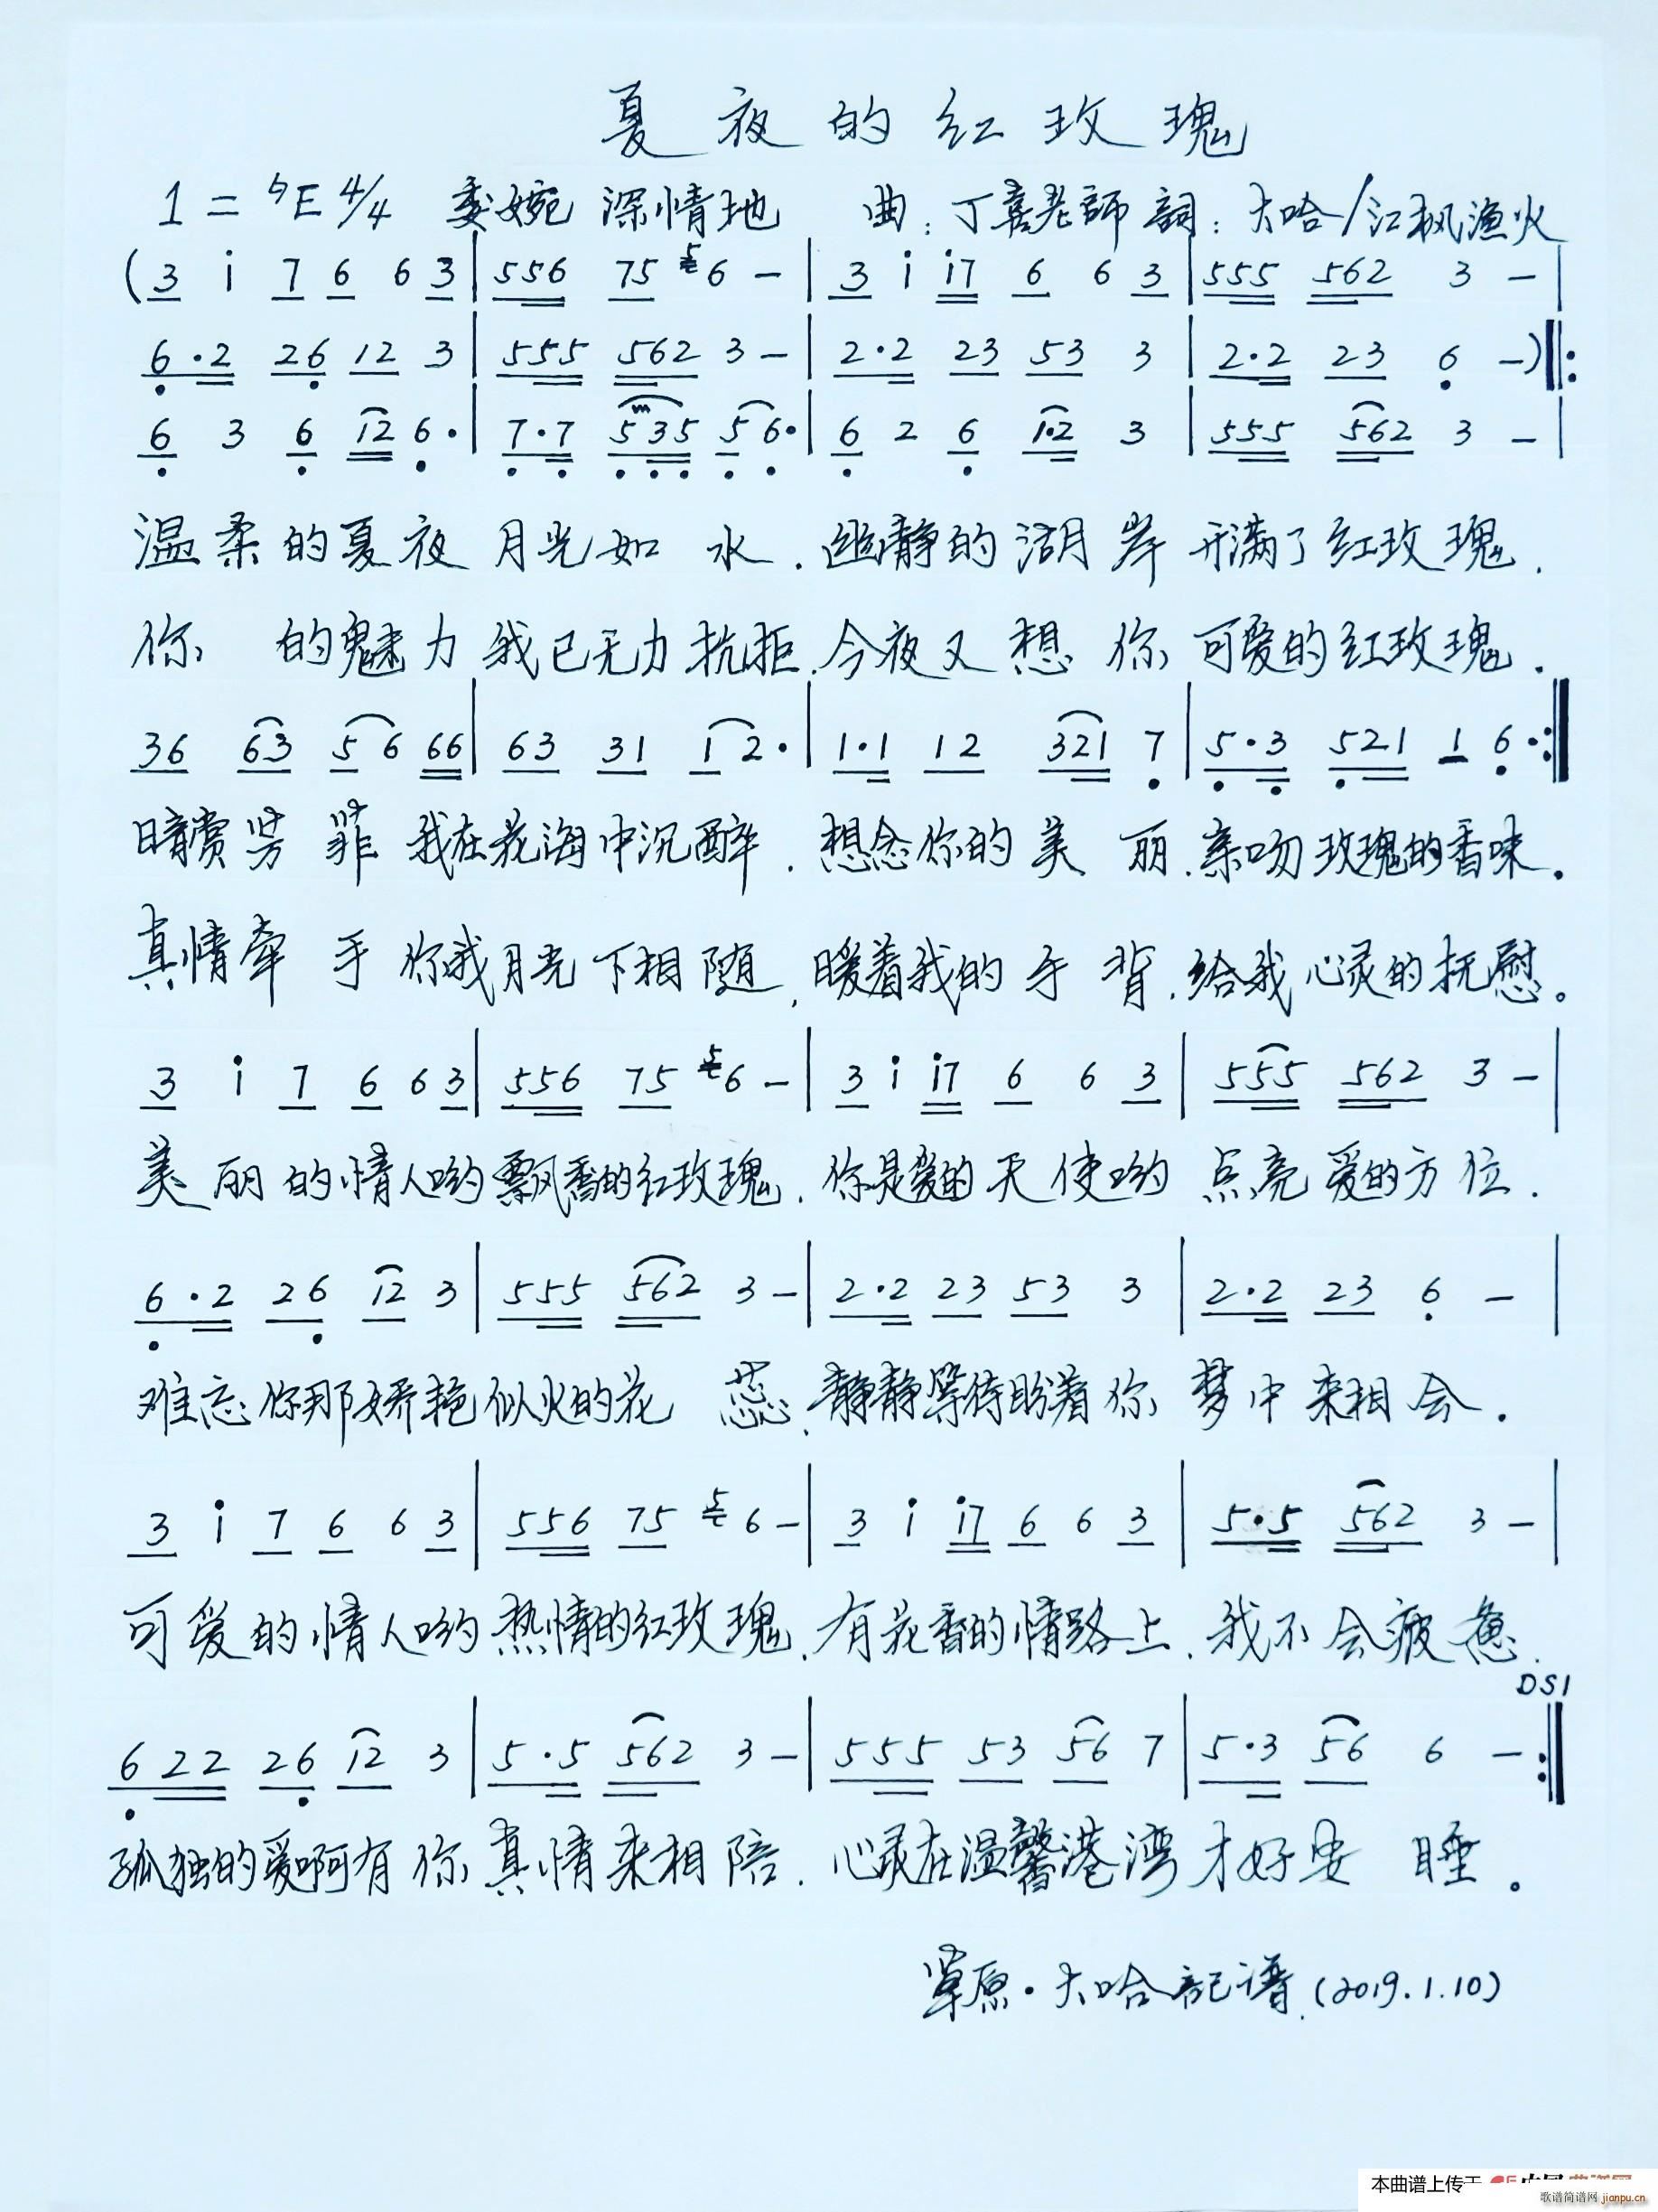 夏夜的红玫瑰
1=♭E 4/4 委婉 深情地 曲:丁喜老師 詞:大哈/江枫渔火
(3 i 7 6 6 3 | 556 75 5 6 - | 3 i i7 6 6 3 | 555 562 3 - |
6·2 26 12 3 | 555 562 3 - | 2·2 23 53 3 | 2·2 23 6 -) ‖:
6 3 6 12 6· | 7·7 535 5 6· | 6 2 6 1·2 3 | 555 562 3 - |
温柔的夏夜 月光如 水.幽静的湖岸 开满了红玫瑰.
你 的魅力 我已无力抗拒.今夜又想 你 可爱的红玫瑰.
36 63 5 6 66 | 63 31 1 2· | 1·1 12 321 7 | 5·3 521 1 6· :‖
暗赏芳 菲 我在花海中沉醉.想念你的美 丽.亲吻玫瑰的香味。
真情牵 手 你我月光下相随,暖着我的手 背.给我心灵的抚慰。
3 i 7 6 6 3 | 556 75 5 6 - | 3 i i7 6 6 3 | 555 562 3 - |
美丽的情人哟 飘香的红玫瑰.你是爱的天使哟 点亮爱的方位.
6·2 26 12 3 | 555 562 3 - | 2·2 23 53 3 | 2·2 23 6 - |
难忘你那娇艳 似火的花 蕊.静静等待盼着你 梦中来相会.
3 i 7 6 6 3 | 556 75 5 6 - | 3 i i7 6 6 3 | 5·5 562 3 - |
可爱的情人哟 热情的红玫瑰.有花香的情路上.我不会疲惫.
DS1
622 26 12 3 | 5·5 562 3 - | 555 53 56 7 | 5·3 56 6 - :‖
孤独的爱啊有你 真情来相陪.心灵在温馨港湾 才好安 睡。
草原·大哈記谱.(2019.1.10)
本曲谱上传于
歌谱简谱网 jianpu.cn